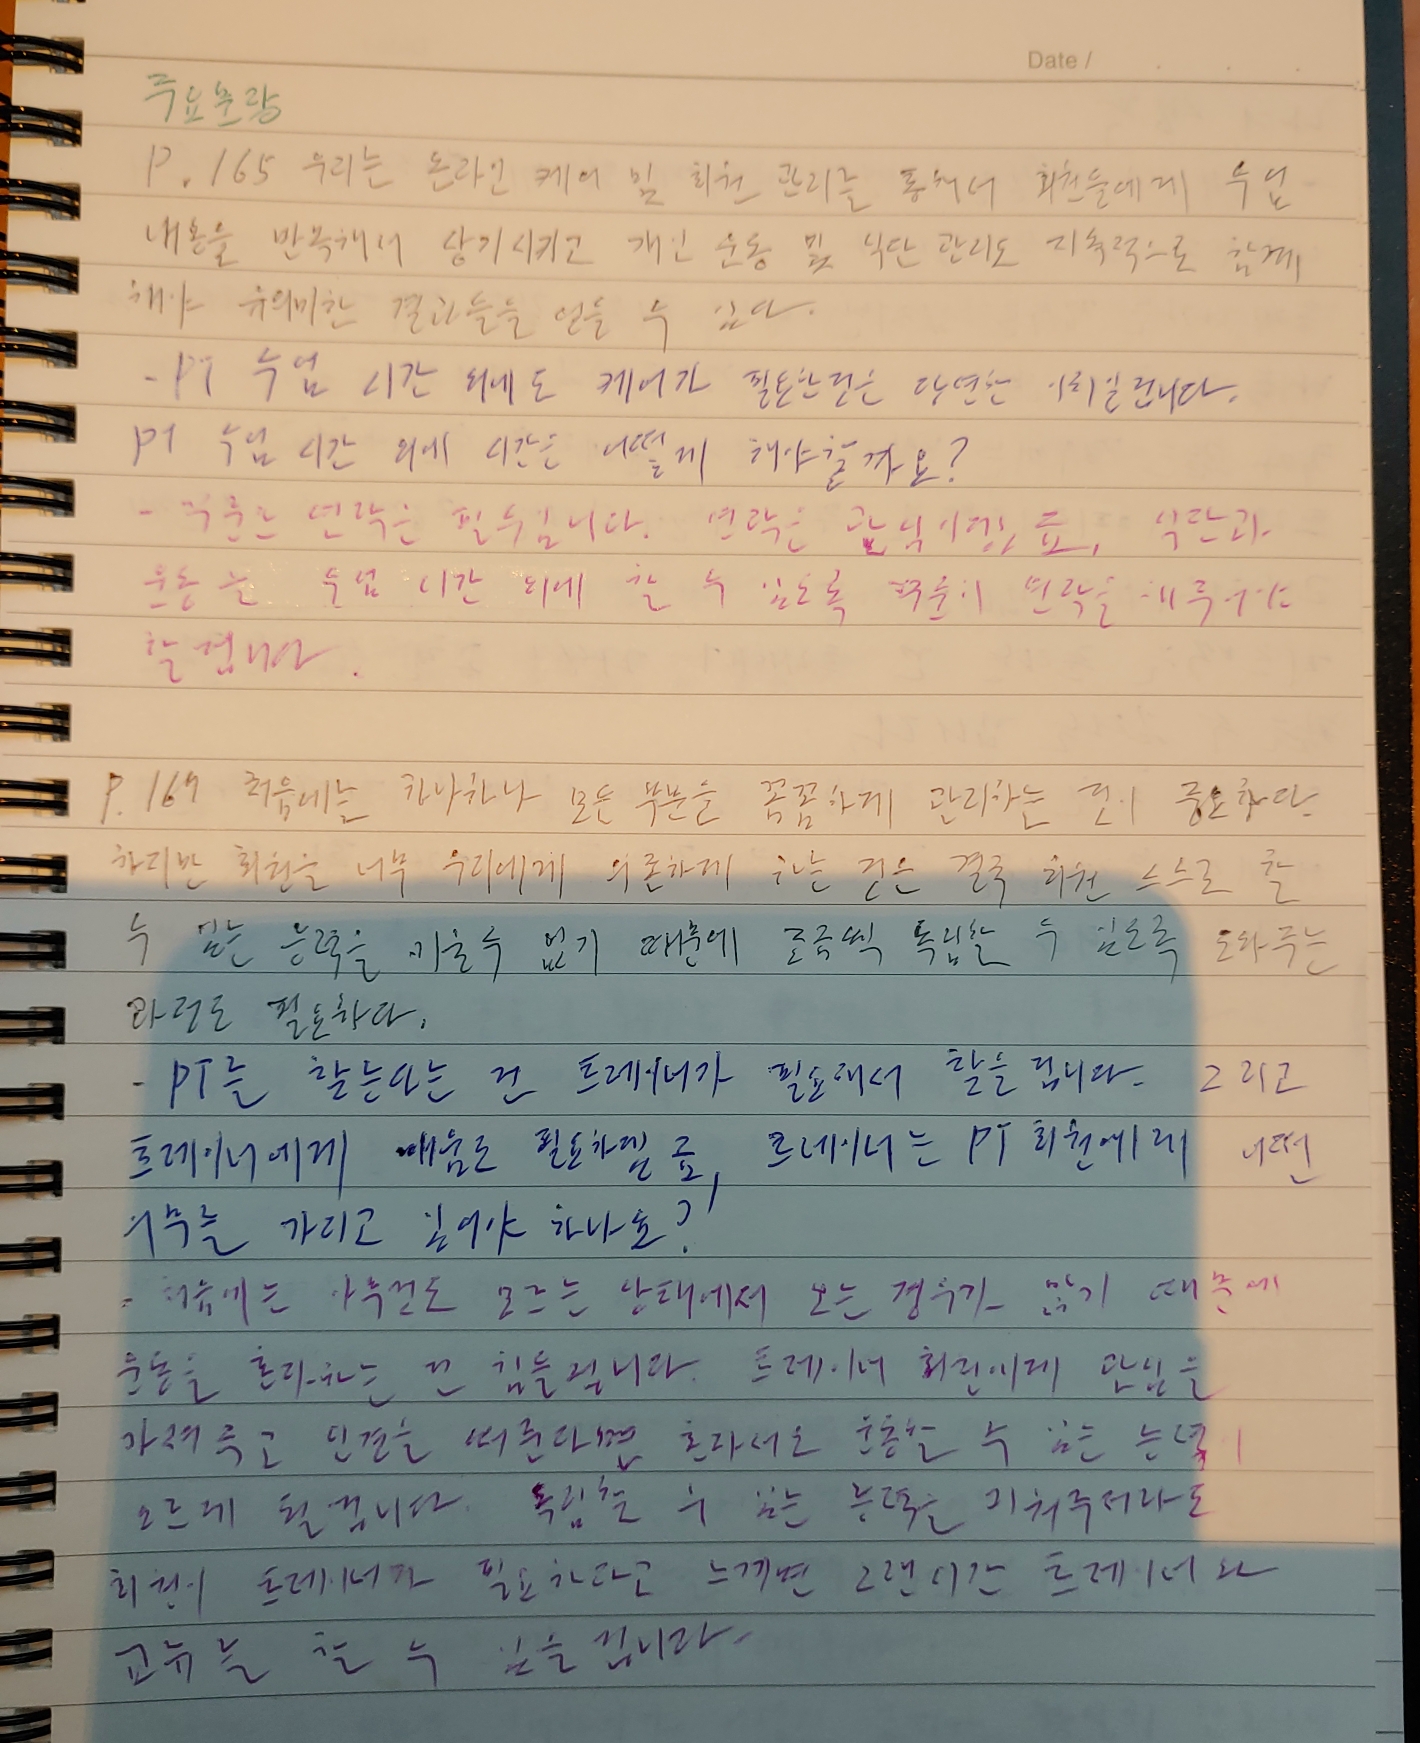 Date /
주요문장
P. 165 우리는 온라인 케어 및 회원 관리를 통해서 회원들에게 수업
내용을 반복해서 상기시키고 개인 운동 및 식단 관리도 지속적으로 함께
해야 유의미한 결과들을 얻을 수 있다.
- PT 수업 시간 외에도 케어가 필요한건은 당연한 일겁니다.
PT 수업 시간 외에 시간은 어떻게 해야할까요?
- 꾸준한 연락은 필수입니다. 연락은 관심이며, 식단과
운동을 수업 시간 외에 할 수 있도록 꾸준히 연락을 해
할겁니다.
P. 169 처음에는 하나하나 모든 부분을 꼼꼼하게 관리하는 것이 중요하다
하지만 회원을 너무 우리에게 의존하게 하는 것은 결국 회원 스스로 할
수 있는 능력을 키울수 없기 때문에 조금씩 독립할 수 있도록 도와주는
과정도 필요하다.
- PT를 한다는 건 트레이너가 필요해서 할겁니다. 그리고
트레이너에게 배움도 필요하며, 트레이너는 PT 회원에게 어떤
의무를 가지고 있어야 하나요?
- 처음에는 아무것도 모르는 상태에서 오는 경우가 많기 때문에
운동을 혼자하는 건 힘들겁니다. 트레이너 회원에게 관심을
가져주고 인연을 혼자서도 운동할 수 있는 능력이
오르게 될겁니다. 독립할 수 있는 능력을 키워주더라도
회원이 트레이너가 필요하다고 느끼면 그땐 시간 트레이너와
교류를 할 수 있을겁니다.